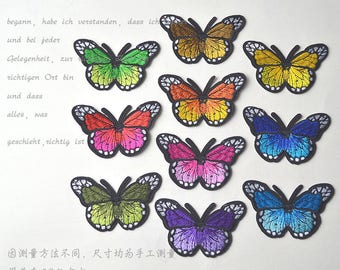 begann, habe ich verstanden, dass ich
und bei jeder
Gelegenheit, zur
richtigen Ort bin
und dass
alles, was
geschieht, richtig ist
因测量方法不同,尺寸均为手工测量